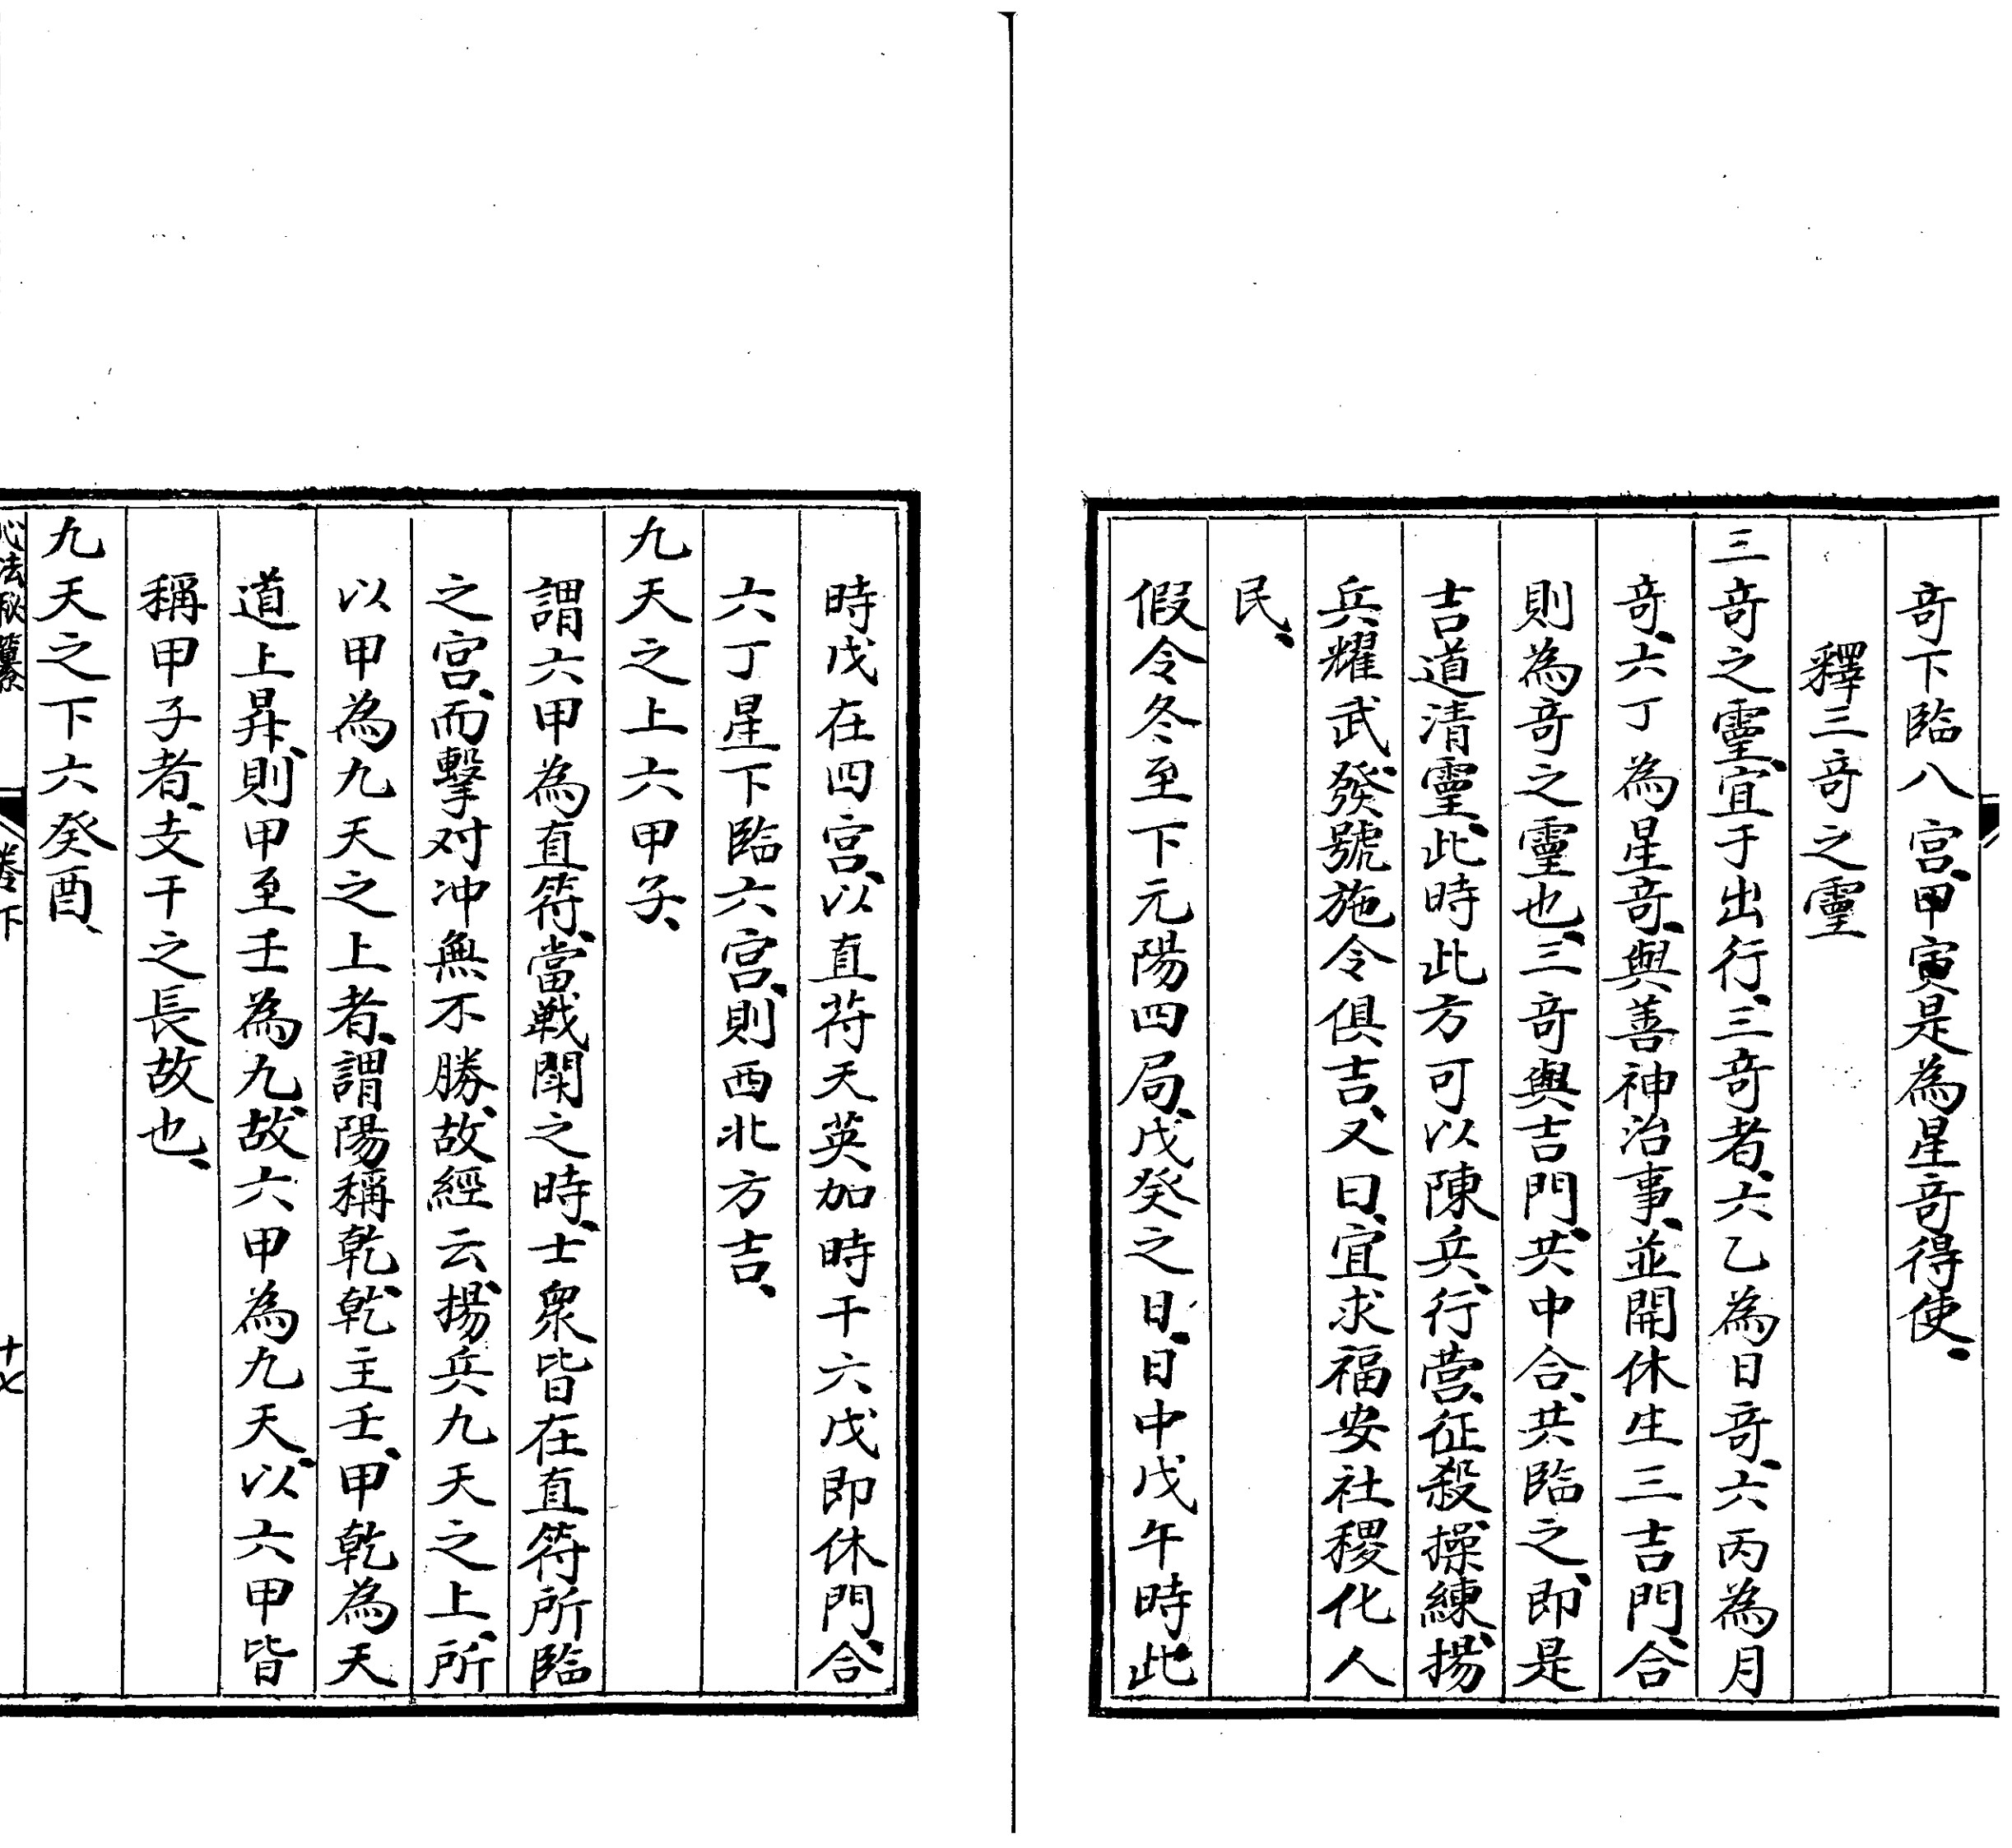 奇下臨八宮、甲寅是為星奇得使、
釋三奇之靈
三奇之靈、宜于出行、三奇者、六乙為日奇、六丙為月
奇、六丁為星奇、與善神治事、並開休生三吉門、合
則為奇之靈也、三奇與吉門、共中合、共臨之、即是
吉道清靈、此時此方可以陳兵、行營、征殺、操練、揚
兵、耀武發號施令俱吉、又曰、宜求福安社稷化人
民、
假令冬至下元陽四局、戊癸之日、日中戊午時此
時戊在四宮、以直苻天英加時干六戊即休門、合
六丁星下臨六宮、則西北方吉、
九天之上六甲子、
謂六甲為直符、當戰鬧之時、士衆皆在直符所臨
之宮、而擊对冲無不勝、故經云、揚兵九天之上、所
以甲為九天之上者、謂陽稱乾、乾主壬、甲、乾為天
道上昇、則甲至壬為九、故六甲為九天、以六甲皆
稱甲子者、支干之長故也、
九天之下六癸酉、
心法秘纂 卷下 十七